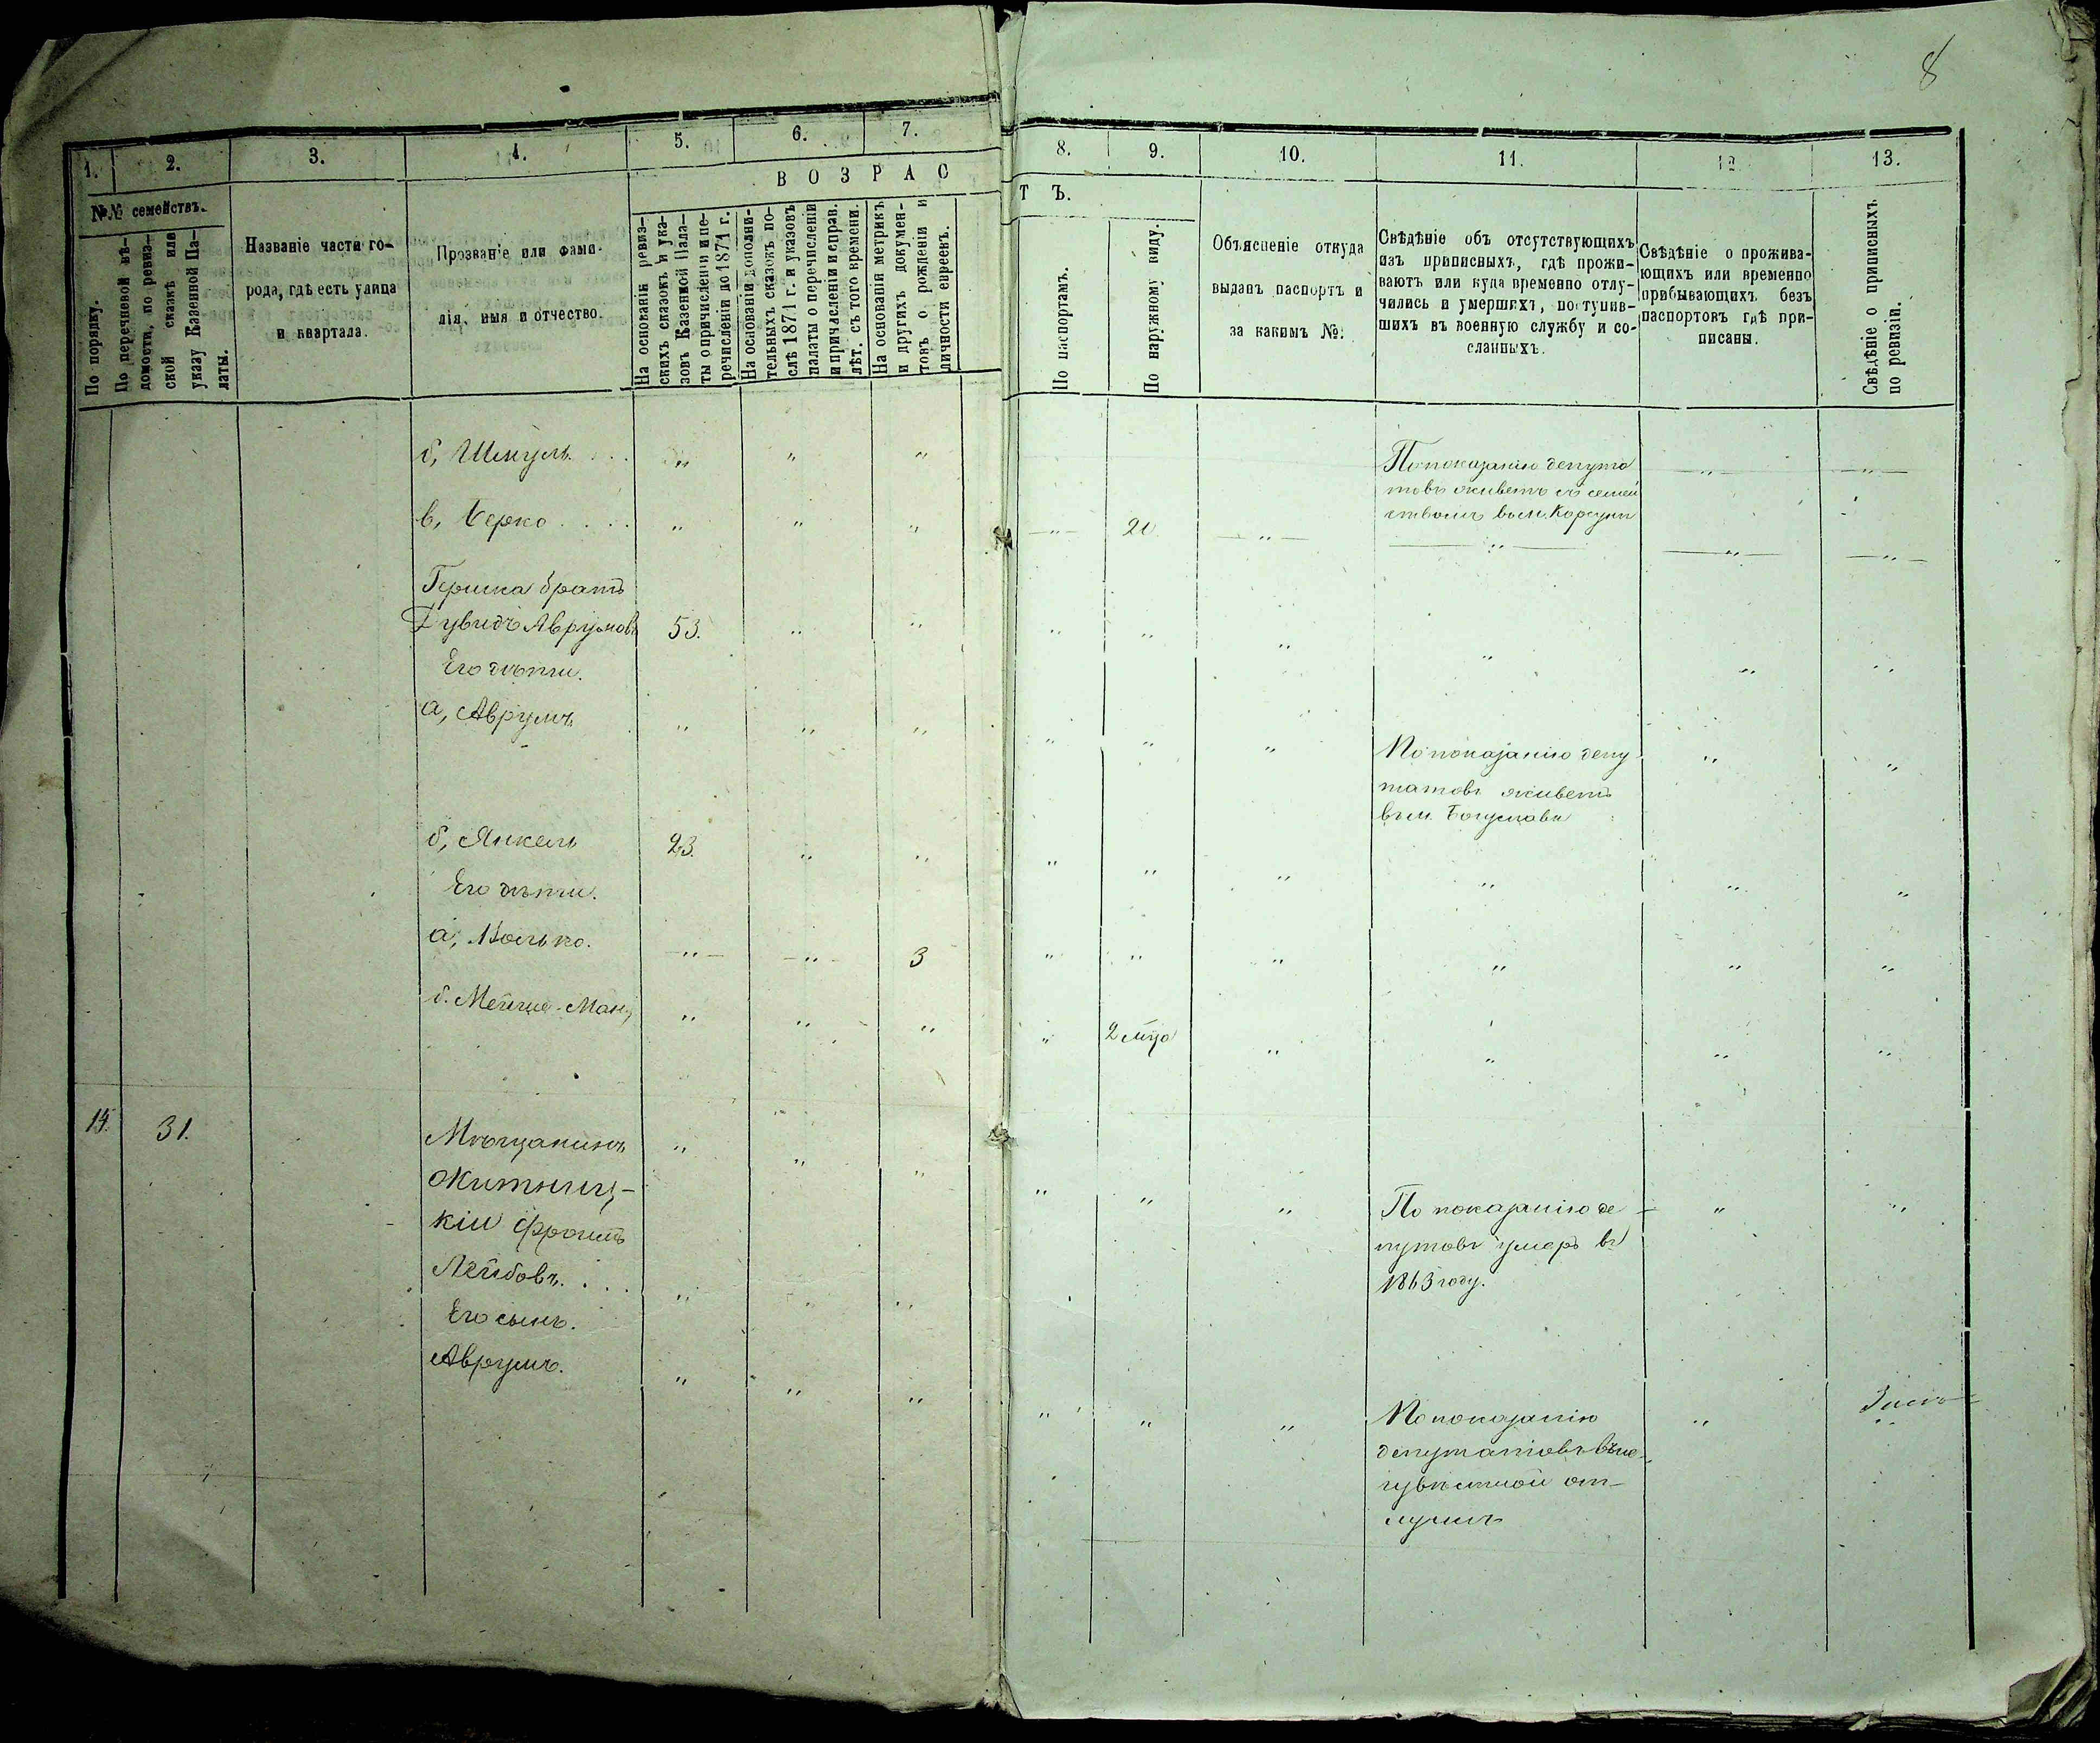 8
1. 2. 3. 4. 5. 6. 7. 8. 9. 10. 11. 12 13.
№№ семействъ.
В О З Р А С Т Ъ.
По порядку.
По перечневой вѣ-
домости, по ревиз-
ской сказкѣ или
указу Казенной Па-
латы.
Названіе части го-
рода, гдѣ есть улица
и квартала.
Прозваніе или фами-
лія, имя и отчество.
На основаніи ревиз-
скихъ сказокъ и ука-
зовъ Казенной Пала-
ты о причисленіи и пе-
речисленіи до 1871 г.
На основаніи дополни-
тельныхъ сказокъ по-
слѣ 1871 г. и указовъ
палаты о перечисленіи
и причисленіи и справ.
лѣт. съ того времени.
На основаніи метрикъ
и другихъ докумен-
товъ о рожденіи и
личности евреевъ.
По паспортамъ.
По наружному виду.
Объясненіе откуда
выданъ паспортъ и
за какимъ №.
Свѣдѣніе объ отсутствующихъ
изъ приписныхъ, гдѣ прожи-
ваютъ или куда временно отлу-
чились и умершихъ, поступив-
шихъ въ военную службу и со-
сланныхъ.
Свѣдѣніе о прожива-
ющихъ или временно
прибывающихъ безъ
паспортовъ гдѣ при-
писаны.
Свѣдѣніе о приписныхъ
по ревизіи.
б, Шмуль . . . " " "
По показанію депута
товъ живетъ съ семей
ствомъ въ м. Корсуни
—"— —"—
в, Берко . . . . " " " —"— 20 —"— —"— —"— —"—
Гершка братъ
Дувидъ Аврумовъ 53. " " " " " " " "
Его дѣти.
а, Аврумъ " " " " " "
По показанію депу
татовъ живетъ
въ м. Богуславѣ
" "
б, Янкель 23. " " " " " " " "
Его дѣти.
а, Волько. —"— —"— 3 " " " " " "
б. Мейше-Ман, " " " " 2 мца " " " "
14. 31. Мѣщанинъ " " "
Житниц-
кій Фроимъ
Лейбовъ. . . . " " " " " "
По показанію де
путовъ умеръ въ
1863 году.
" "
Его сынъ.
Аврумъ. " " " " " "
По показанію
депутатовъ въ не
извѣстной от-
лучкѣ
" "